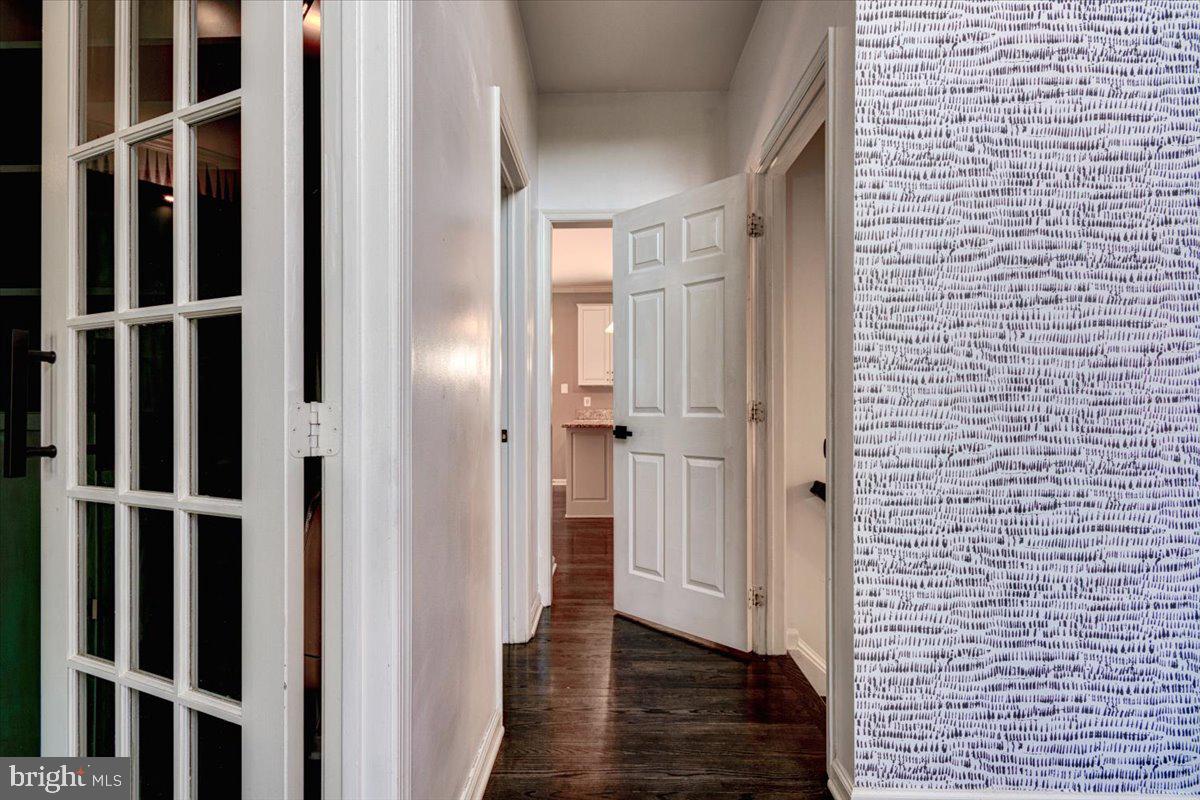 bright MLS